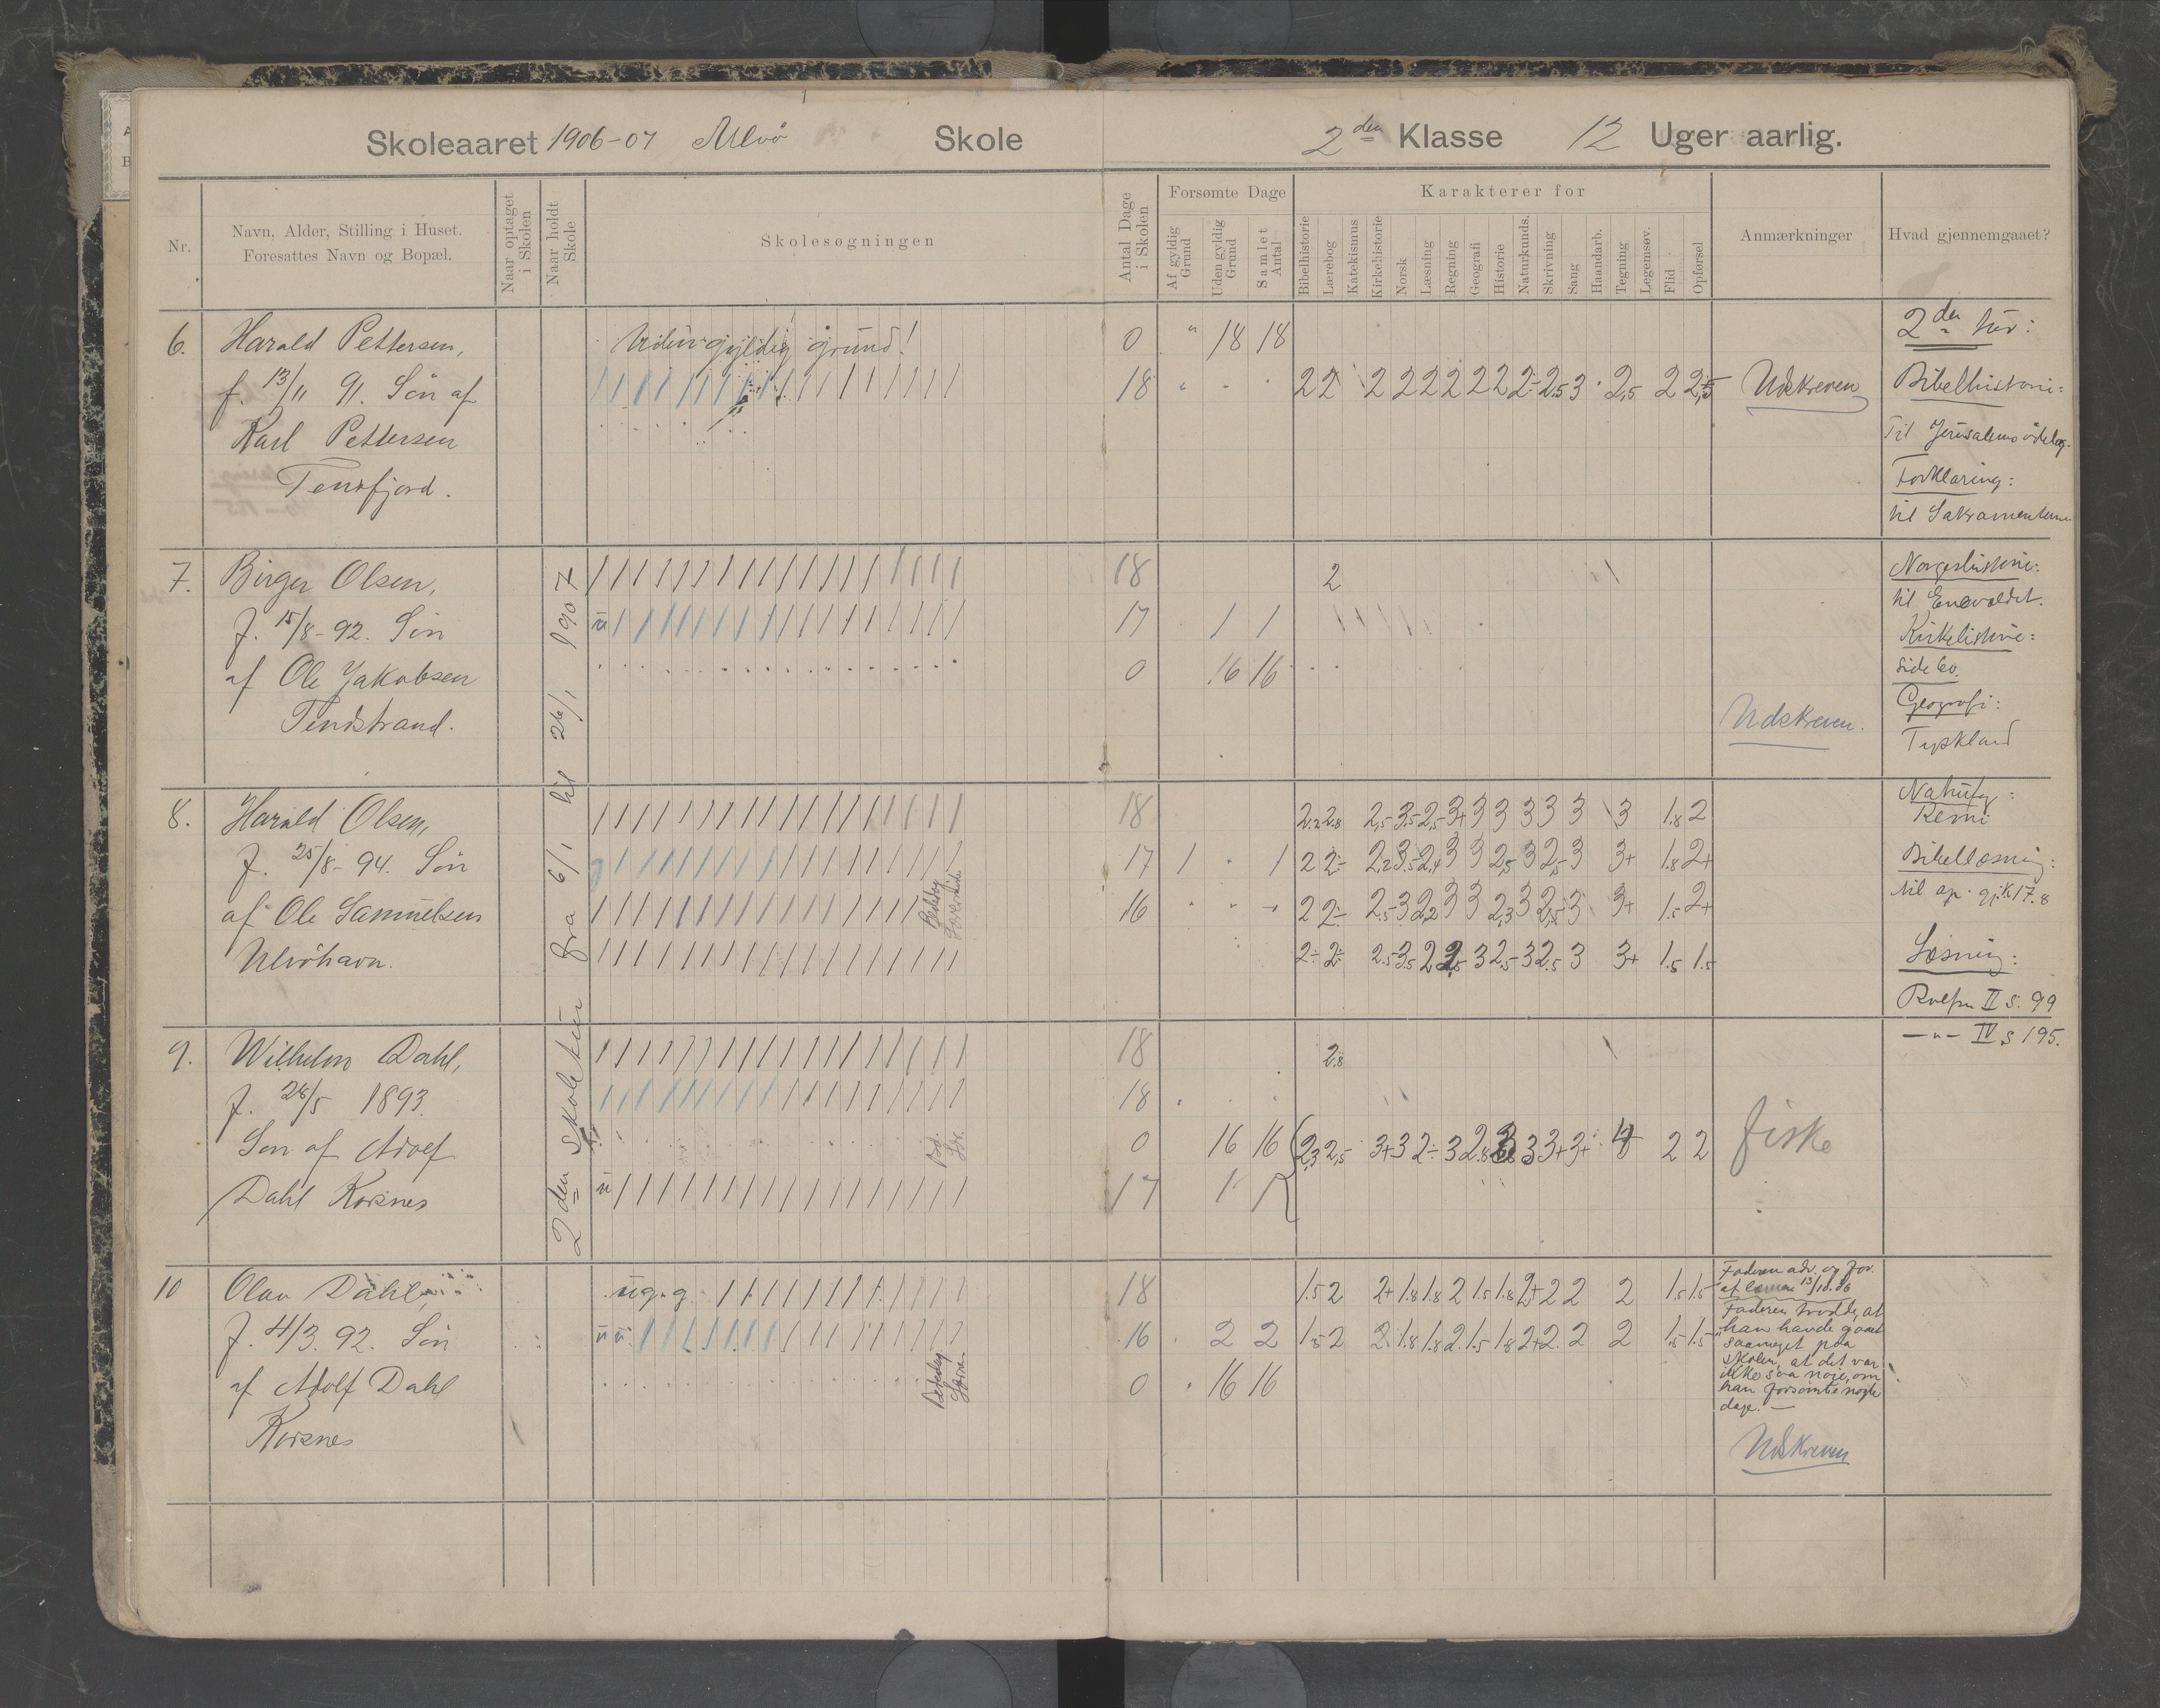 Skoleaaret 1906-07 Ulvö Skole
2den Klasse 12 Uger aarlig.
Nr.
Navn, Alder, Stilling i Huset.
Foresattes Navn og Bopæl.
Naar optaget
i Skolen
Naar holdt
Skole
Skolesøgningen
Antal Dage
i Skolen
Forsømte Dage
Af gyldig
Grund
Uden gyldig
Grund
Samlet
Antal
Karakterer for
Bibelhistorie
Lærebog
Katekismus
Kirkehistorie
Norsk
Læsning
Regning
Geografi
Historie
Naturkunds.
Skrivning
Sang
Haandarb.
Tegning
Legemsøv.
Flid
Opførsel
Anmærkninger
Hvad gjennemgaaet?
2den skoletur fra 6/1 til 26/1 1907
6. Harald Pettersen, Uden gyldig grund! 0 " 18 18
f. 13/11 91. Sön af 18 2 2 2 2 2 2 2 2 2 2÷ 2.5 3 2,5 2 2,5 Udskreven
Karl Pettersen
Tensfjord.
7. Birger Olsen, 18 2
f. 15/8-92. Sön ü 17 1 1
af Ole Jakobsen 0 16 16
Tendstrand. Udskreven.
8. Harald Olsen, 18 2.2 2.8 2,5 3.5 2,5 3+ 3 3 3 3 3 3 1.8 2
f. 25/8-94. Sön 17 1 1 2 2÷ 2,2 3.5 2,4 3 3 2,5 3 2,5 3 3+ 1.8 2+
af Ole Samuelsen 16 2 2÷ 2.5 3 2,2 3 3 2,3 3 2,5 3 3+ 1.5 2+
Ulvöhavn. 2÷ 2÷ 2.5 3.5 2 2,5 3 2,5 3 2.5 3 3+ 1.5 1.5
9. Wilhelm Dahl, 18 2.8
f. 28/5 1893. 18
Sön af Adolf 0 16 16 2,3 2,5 3+ 3 2÷ 3 2.8 3 3 3+ 3+ 4 2 2 fiske
Dahl Korsnes ü 17 1
10 Olav Dahl, ü g. g. 18 1.5 2 2+ 1.8 1.8 2 1.5 1.8 2+ 2 2 2 1.5 1.5
f. 4/3. 92. Sön ü ü 16 2 2 1.5 2 2 1.8 1.8 2 1.5 1.8 2+ 2 2 2 1.5 1.5
af Adolf Dahl 0 16 16
Korsnes
Faderen adv. og for.
13/10.06
Faderen trodde, at
han havde gjaaet
saameget paa
skolen, at det var
ikke saa nøje, om
han forsømte nogle
dage. —
Udskreven
2den tur:
Bibelhistori:
Til Jerusalems ödelæg.
Forklaring:
til Sakramenterne
Norgeshistorie:
til Enevoldet.
Kirkehistorie:
side 60.
Geografi:
Tyskland
Naturfg:
Kemi
Bibellæsning:
til ap. gj. k. 17.8
Læsning:
Rolfsn II s. 99
—"— IV s 195.